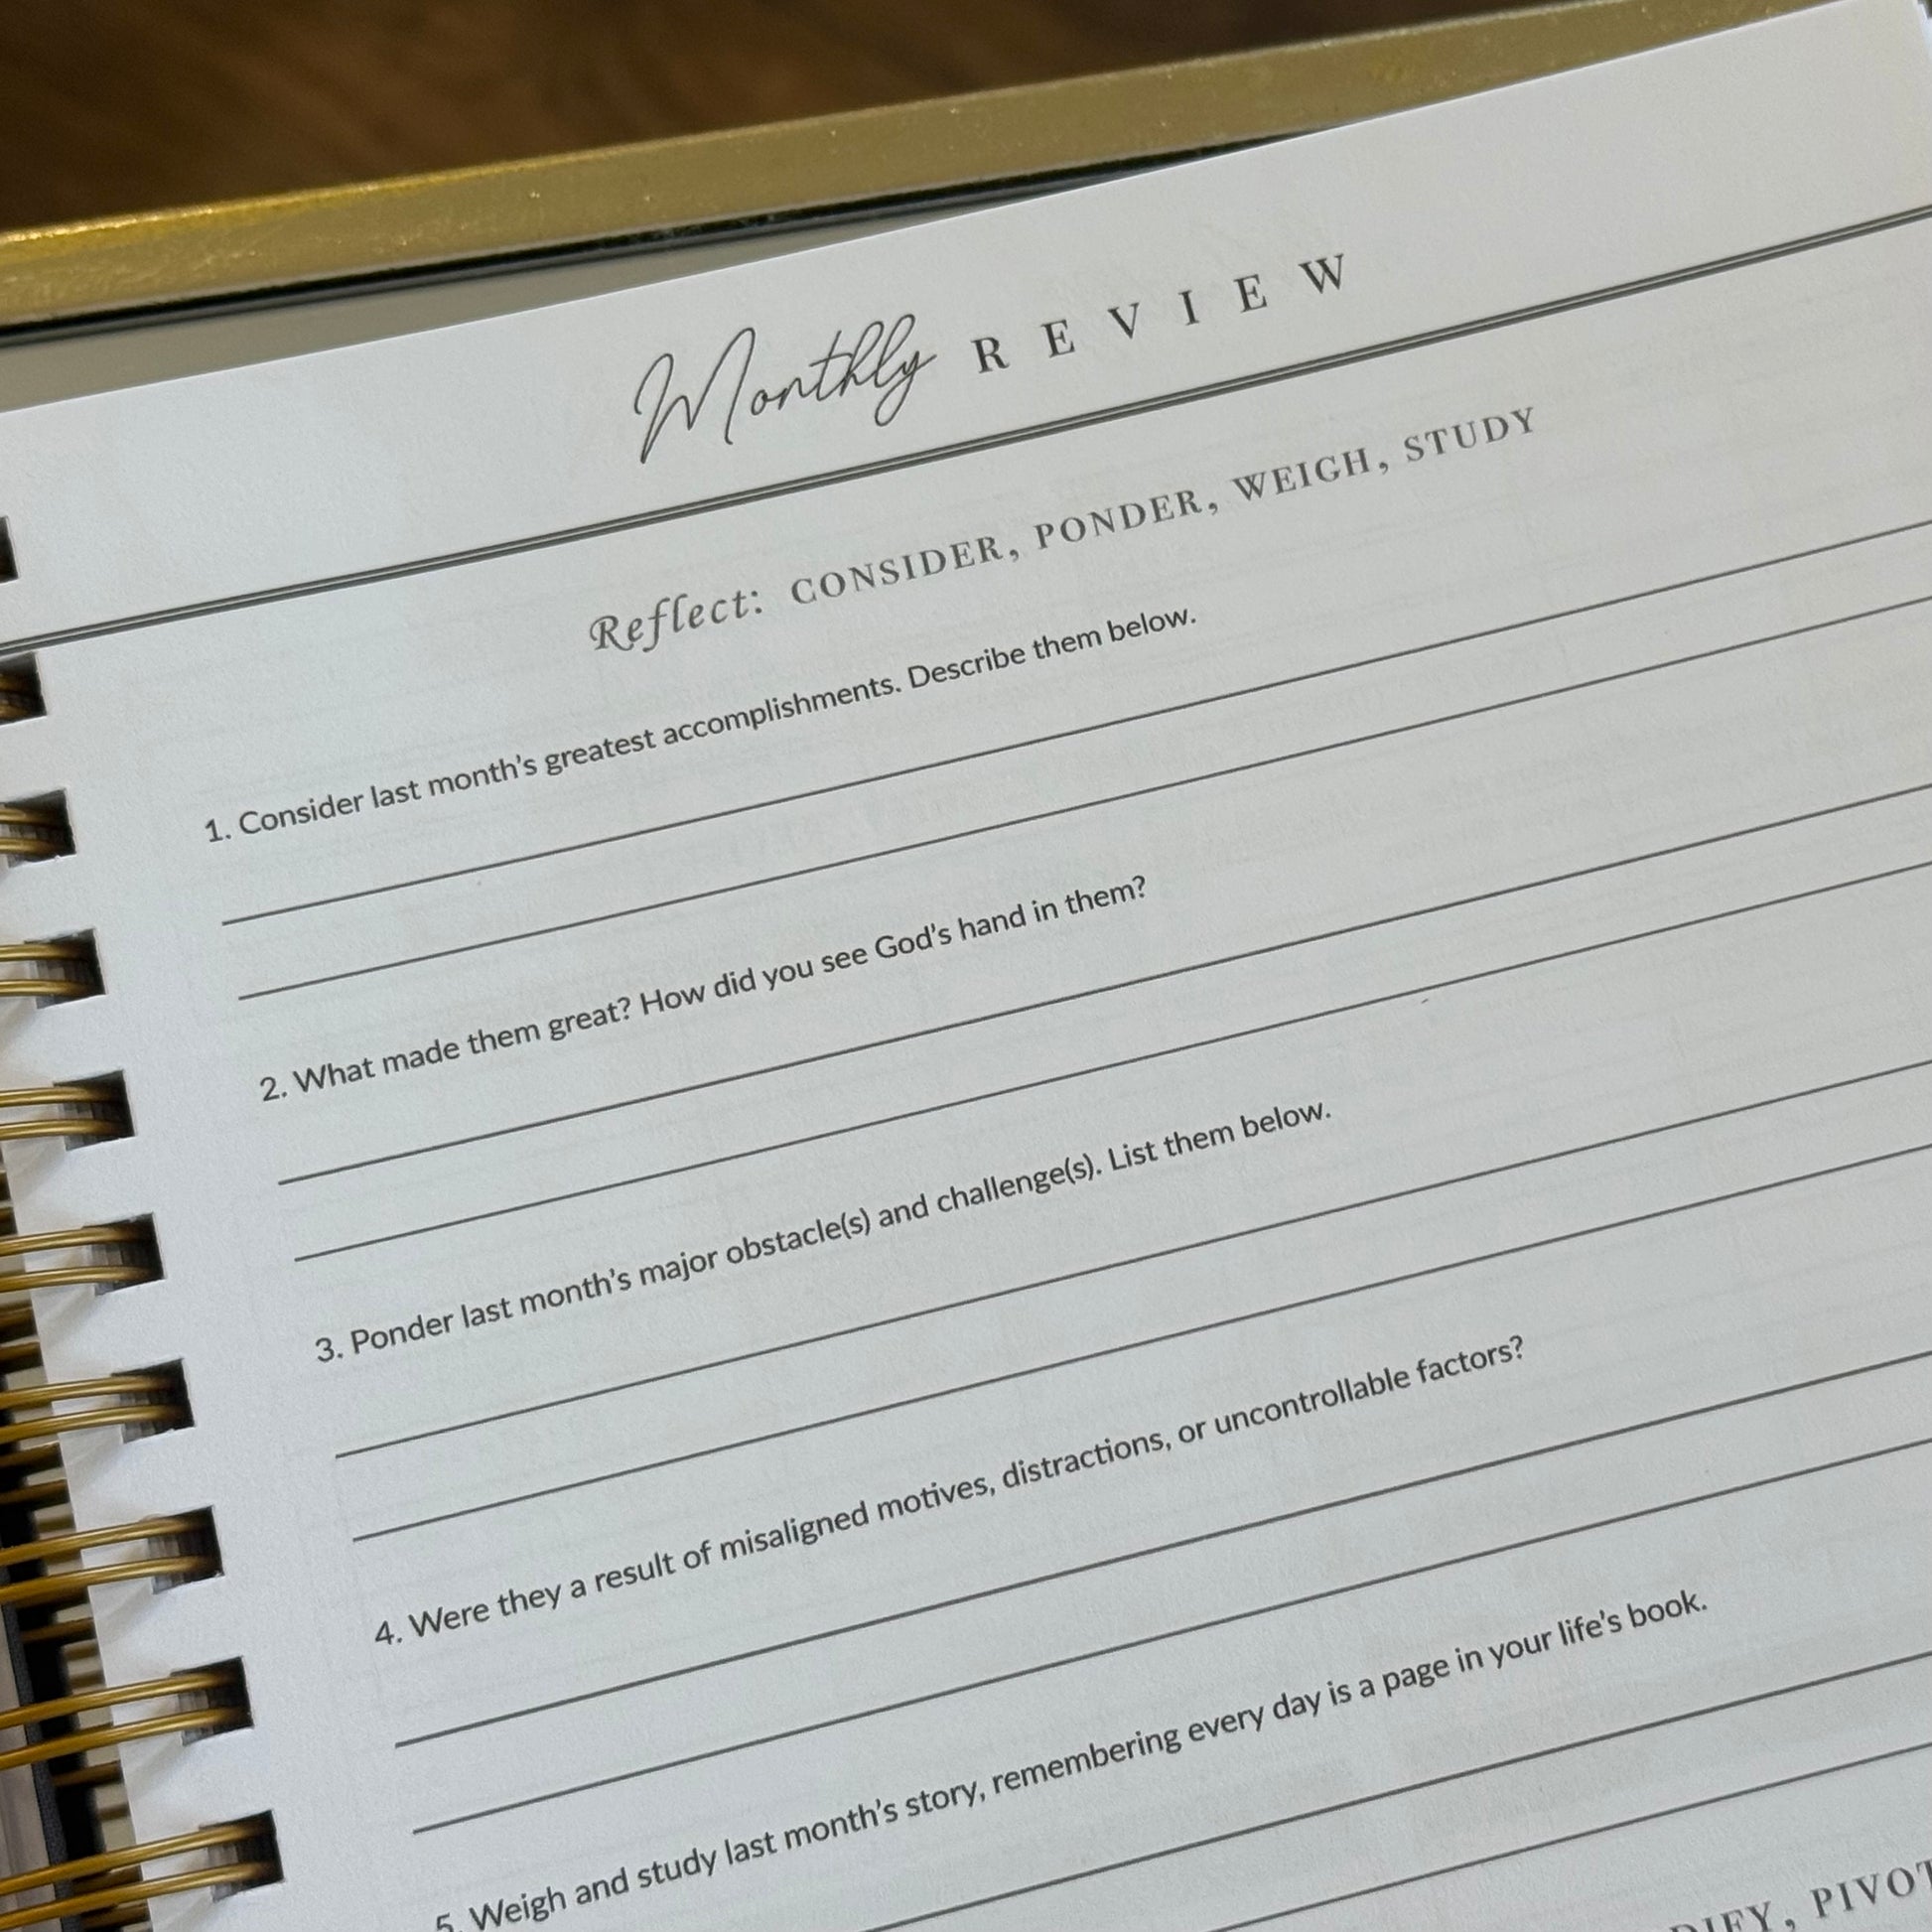 Monthly REVIEW
Reflect: CONSIDER, PONDER, WEIGH, STUDY
1. Consider last month's greatest accomplishments. Describe them below.
2. What made them great? How did you see God's hand in them?
3. Ponder last month's major obstacle(s) and challenge(s). List them below.
4. Were they a result of misaligned motives, distractions, or uncontrollable factors?
5. Weigh and study last month's story, remembering every day is a page in your life's book.